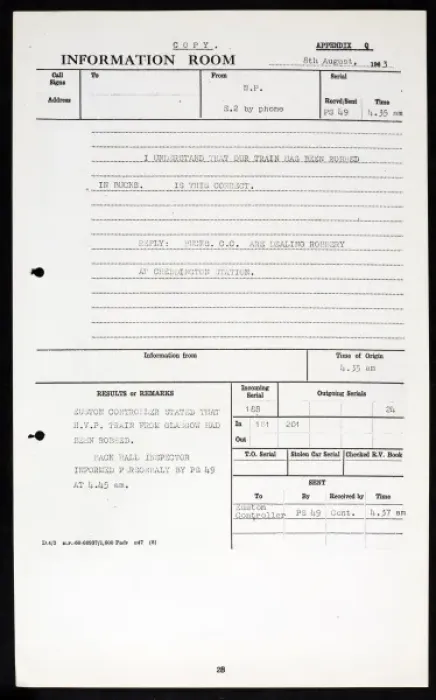 C O P Y .
APPENDIX Q
INFORMATION ROOM
8th August, 1963
Call Signs
To
From
Serial
Address
N.P.
Recvd/Sent Time
Z.2 by phone
PG 49 4.35 am
I UNDERSTAND THAT OUR TRAIN HAS BEEN ROBBED
IN BUCKS. IS THIS CORRECT.
REPLY: BUCKS. C.C. ARE DEALING ROBBERY
AT CHEDDINGTON STATION.
Information from
Time of Origin
4.35 am
RESULTS or REMARKS
Incoming Serial
Outgoing Serials
EUSTON CONTROLLER STATED THAT
H.V.P. TRAIN FROM GLASGOW HAD
BEEN ROBBED.
168 24
In 181 201
Out
BACK HALL INSPECTOR
INFORMED PERSONALLY BY PG 49
AT 4.45 am.
T.O. Serial Stolen Car Serial Checked R.V. Book
SENT
To By Received by Time
Euston
Controller PG 49 Cont. 4.37 am
28